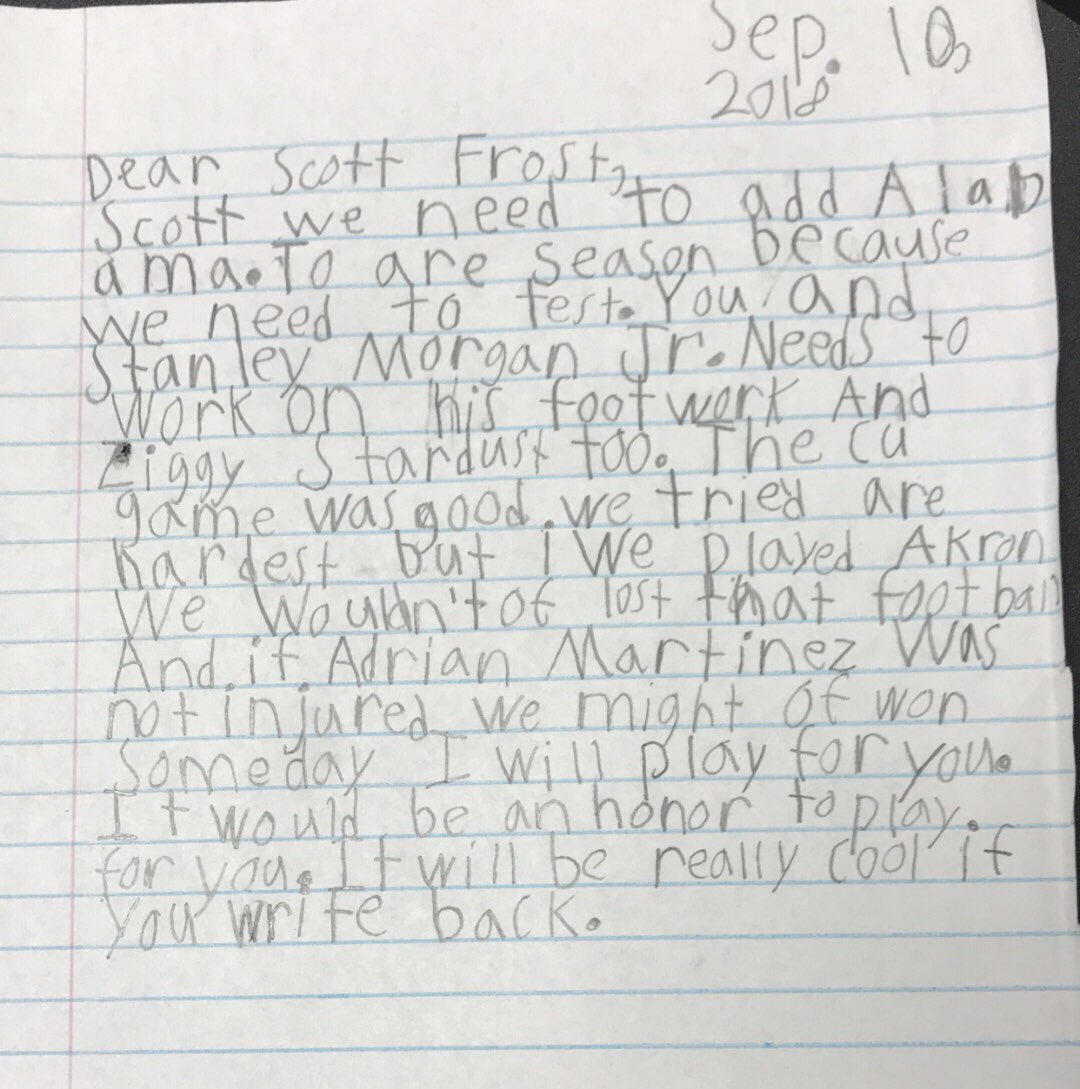 Sep. 10,
2018
Dear Scott Frost,
Scott we need to add Alab
ama. To are season because
we need to test. You and
Stanley Morgan Jr. Needs to
Work on his footwork And
Ziggy Stardust too. The Cu
game was good. we tried are
hardest but i We played Akron
We Wouldn't of lost that football
And. if. Adrian Martinez Was
not injured we might of won
Someday I will play for you.
It would be an honor to play.
for you. It will be really cool if
you write back.